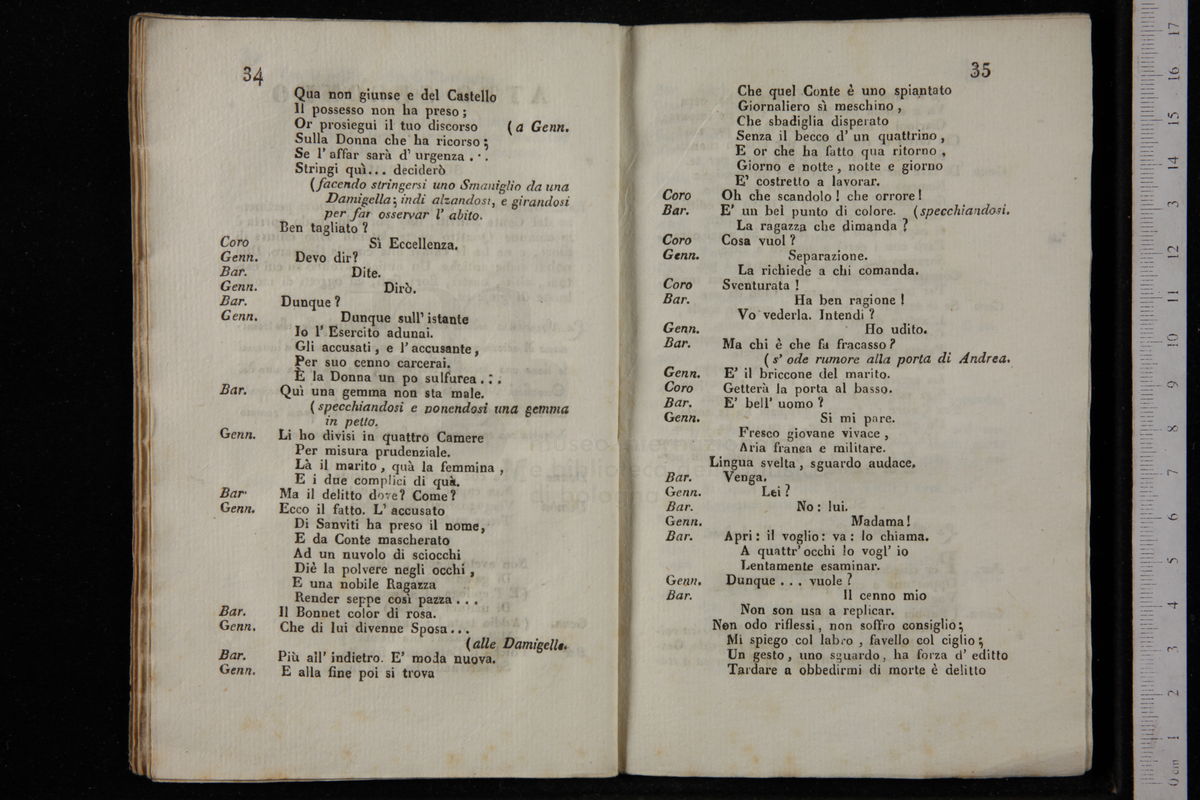 34
Qua non giunse e del Castello
Il possesso non ha preso ;
Or prosiegui il tuo discorso (a Genn.
Sulla Donna che ha ricorso ;
Se l' affar sarà d' urgenza . . .
Stringi quì... deciderò
(facendo stringersi uno Smaniglio da una
Damigella; indi alzandosi, e girandosi
per far osservar l' abito.
Ben tagliato ?
Coro Sì Eccellenza.
Genn. Devo dir?
Bar. Dite.
Genn. Dirò.
Bar. Dunque ?
Genn. Dunque sull' istante
Io l' Esercito adunai.
Gli accusati , e l' accusante ,
Per suo cenno carcerai.
È la Donna un po sulfurea . . .
Bar. Quì una gemma non sta male.
(specchiandosi e ponendosi una gemma
in petto.
Genn. Li ho divisi in quattro Camere
Per misura prudenziale.
Là il marito , quà la femmina ,
E i due complici di quà.
Bar. Ma il delitto dove? Come?
Genn. Ecco il fatto. L' accusato
Di Sanviti ha preso il nome,
E da Conte mascherato
Ad un nuvolo di sciocchi
Diè la polvere negli occhi ,
E una nobile Ragazza
Render seppe così pazza . . .
Bar. Il Bonnet color di rosa.
Genn. Che di lui divenne Sposa...
(alle Damigelle.
Bar. Più all' indietro. E' moda nuova.
Genn. E alla fine poi si trova
35
Che quel Conte è uno spiantato
Giornaliero sì meschino ,
Che sbadiglia disperato
Senza il becco d' un quattrino ,
E or che ha fatto qua ritorno ,
Giorno e notte , notte e giorno
E' costretto a lavorar.
Coro Oh che scandolo ! che orrore !
Bar. E' un bel punto di colore. (specchiandosi.
La ragazza che dimanda ?
Coro Cosa vuol ?
Genn. Separazione.
La richiede a chi comanda.
Coro Sventurata !
Bar. Ha ben ragione !
Vo vederla. Intendi ?
Genn. Ho udito.
Bar. Ma chi è che fa fracasso ?
( s' ode rumore alla porta di Andrea.
Genn. E' il briccone del marito.
Coro Getterà la porta al basso.
Bar. E' bell' uomo ?
Genn. Si mi pare.
Fresco giovane vivace ,
Aria franca e militare.
Lingua svelta , sguardo audace.
Bar. Venga.
Genn. Lei ?
Bar. No : lui.
Genn. Madama!
Bar. Apri : il voglio : va : lo chiama.
A quattr' occhi lo vogl' io
Lentamente esaminar.
Genn. Dunque . . . vuole ?
Bar. Il cenno mio
Non son usa a replicar.
Non odo riflessi, non soffro consiglio ;
Mi spiego col labro , favello col ciglio ;
Un gesto, uno sguardo, ha forza d' editto
Tardare a obbedirmi di morte è delitto
0 cm 1 2 3 4 5 6 7 8 9 10 11 12 13 14 15 16 17